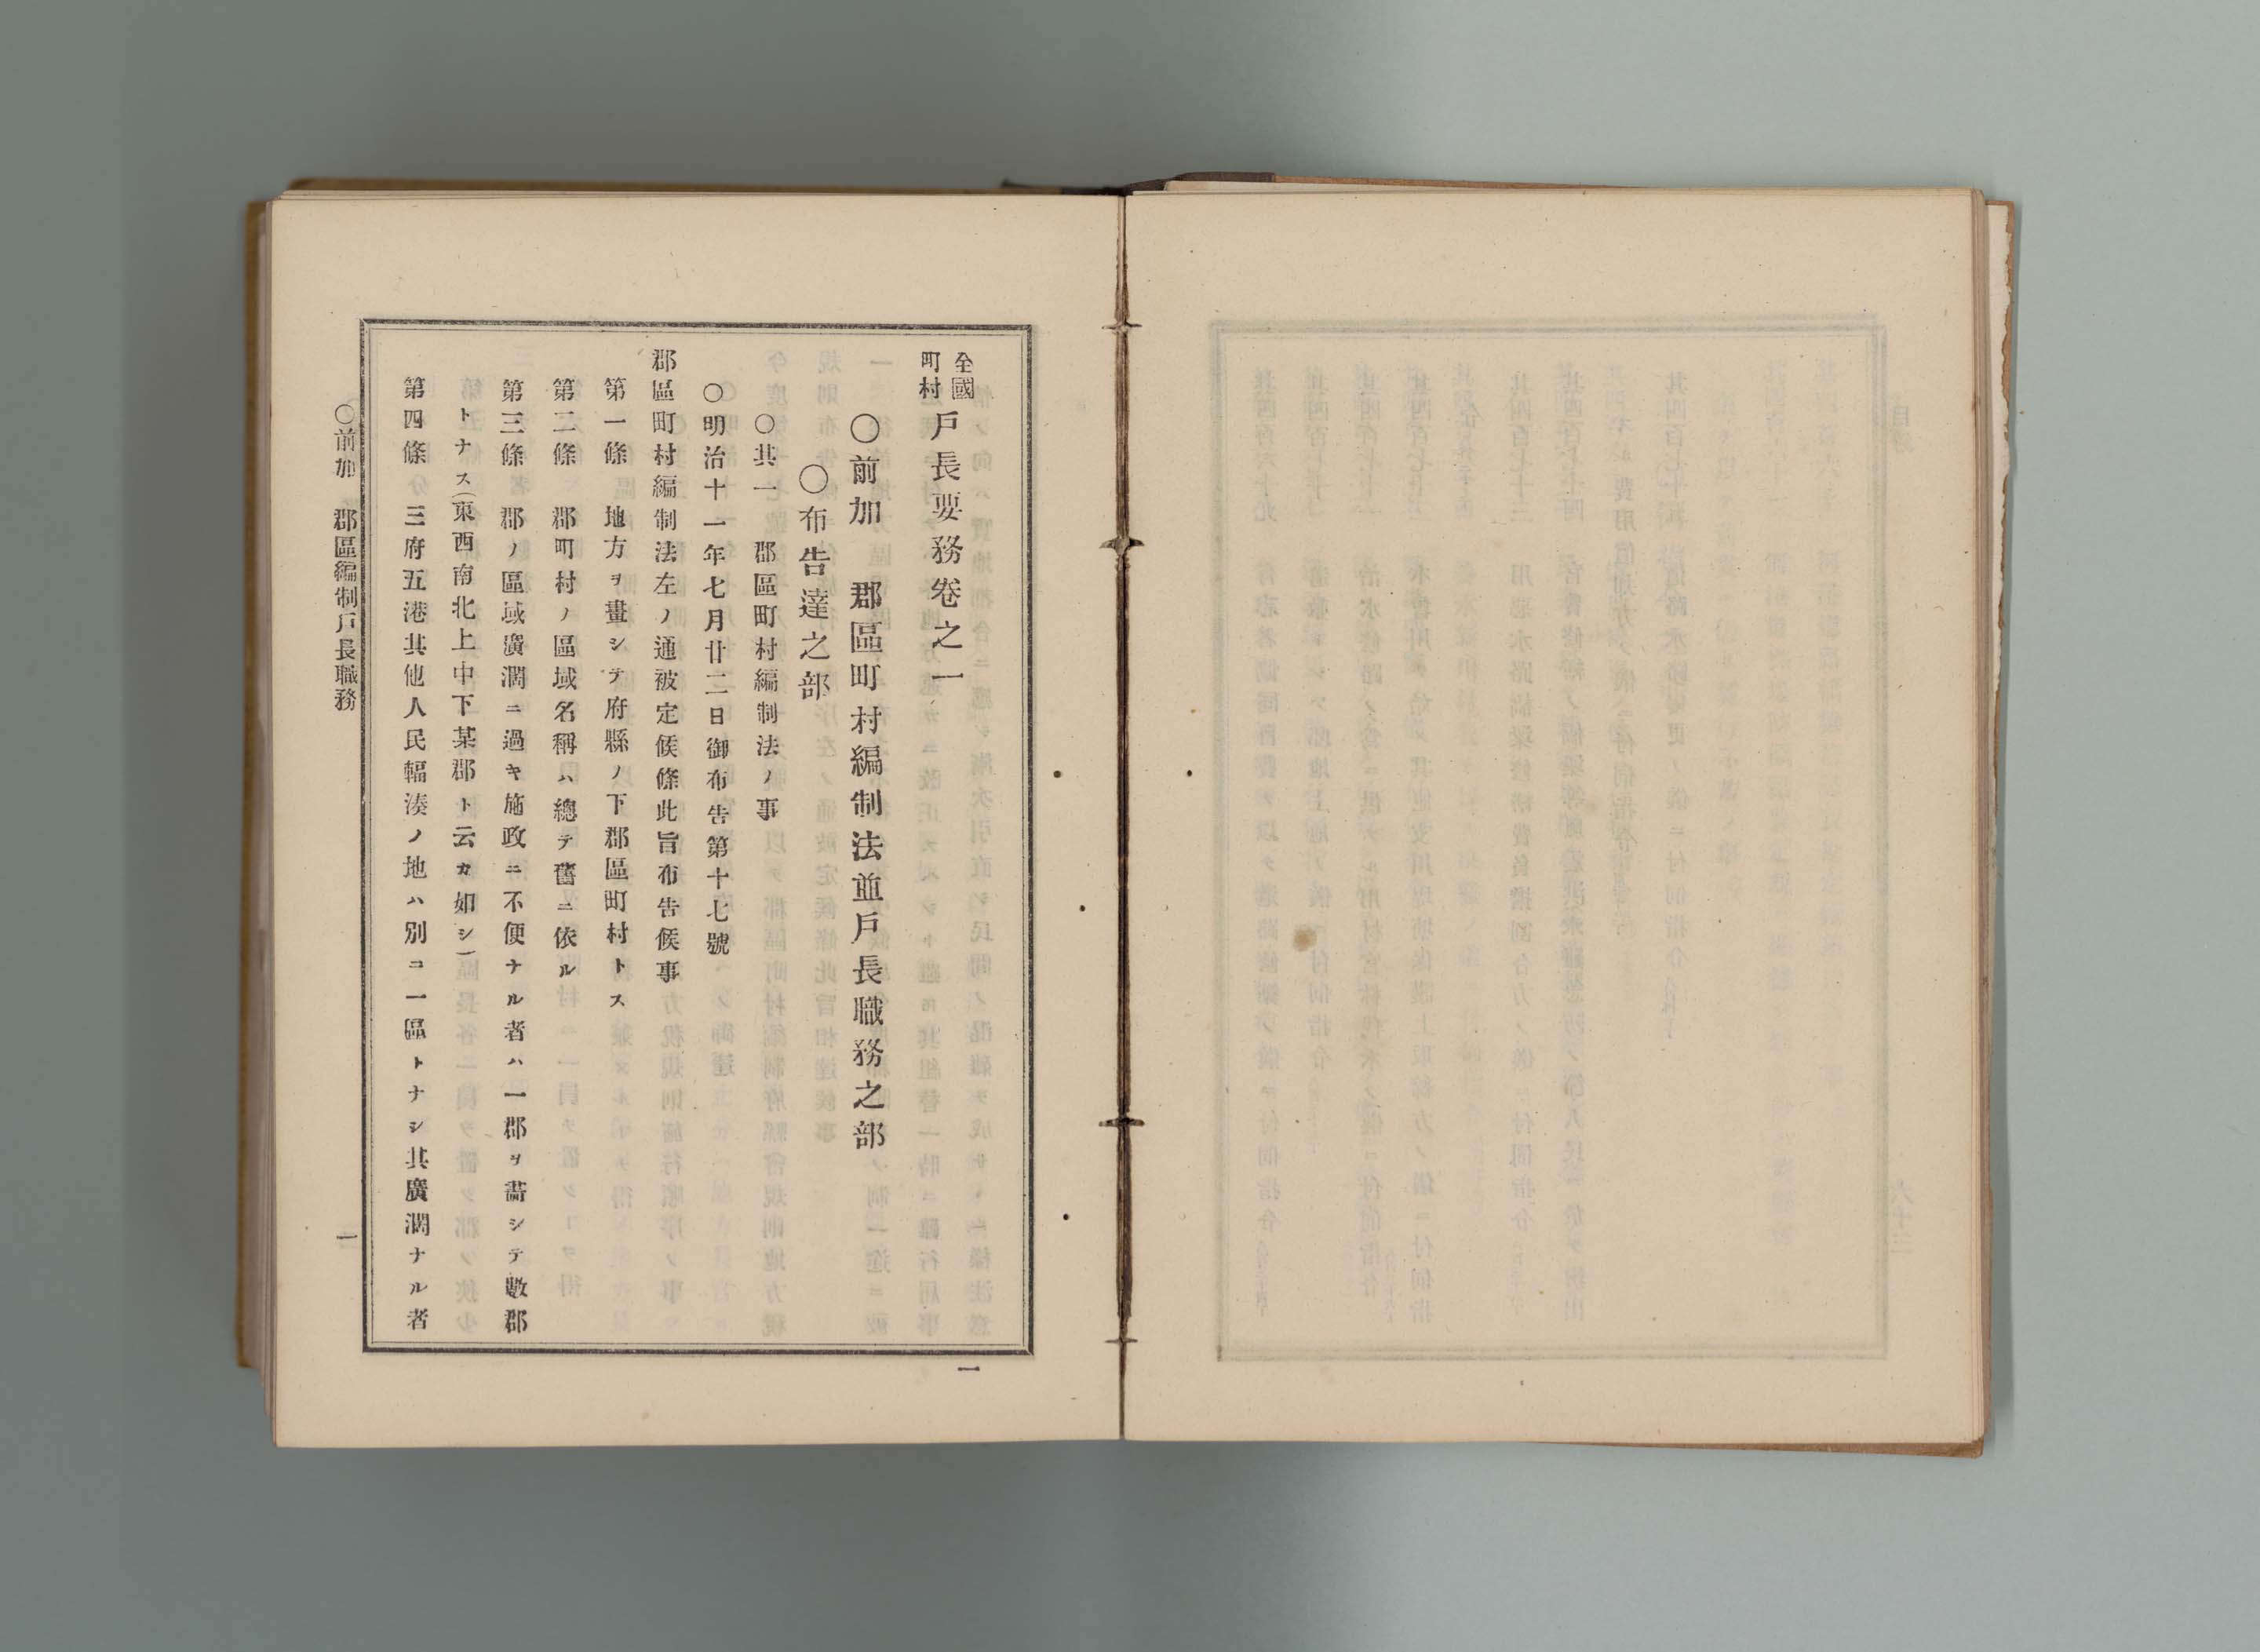 全國
町村
戸長要務卷之一
〇前加　郡區町村編制法並戸長職務之部
〇布告達之部
〇其一　郡區町村編制法ノ事
〇明治十一年七月廿二日御布告第十七號
郡區町村編制法左ノ通被定候條此旨布告候事
第一條　地方ヲ畫シテ府縣ノ下郡區町村トス
第二條　郡町村ノ區域名稱ハ總テ舊ニ依ル
第三條　郡ノ區域廣濶ニ過キ施政ニ不便ナル者ハ一郡ヲ畵シテ數郡
トナス(東西南北上中下某郡ト云カ如シ)
第四條　三府五港其他人民輻湊ノ地ハ別ニ一區トナシ其廣濶ナル者
〇前加　郡區編制戸長職務
一
一